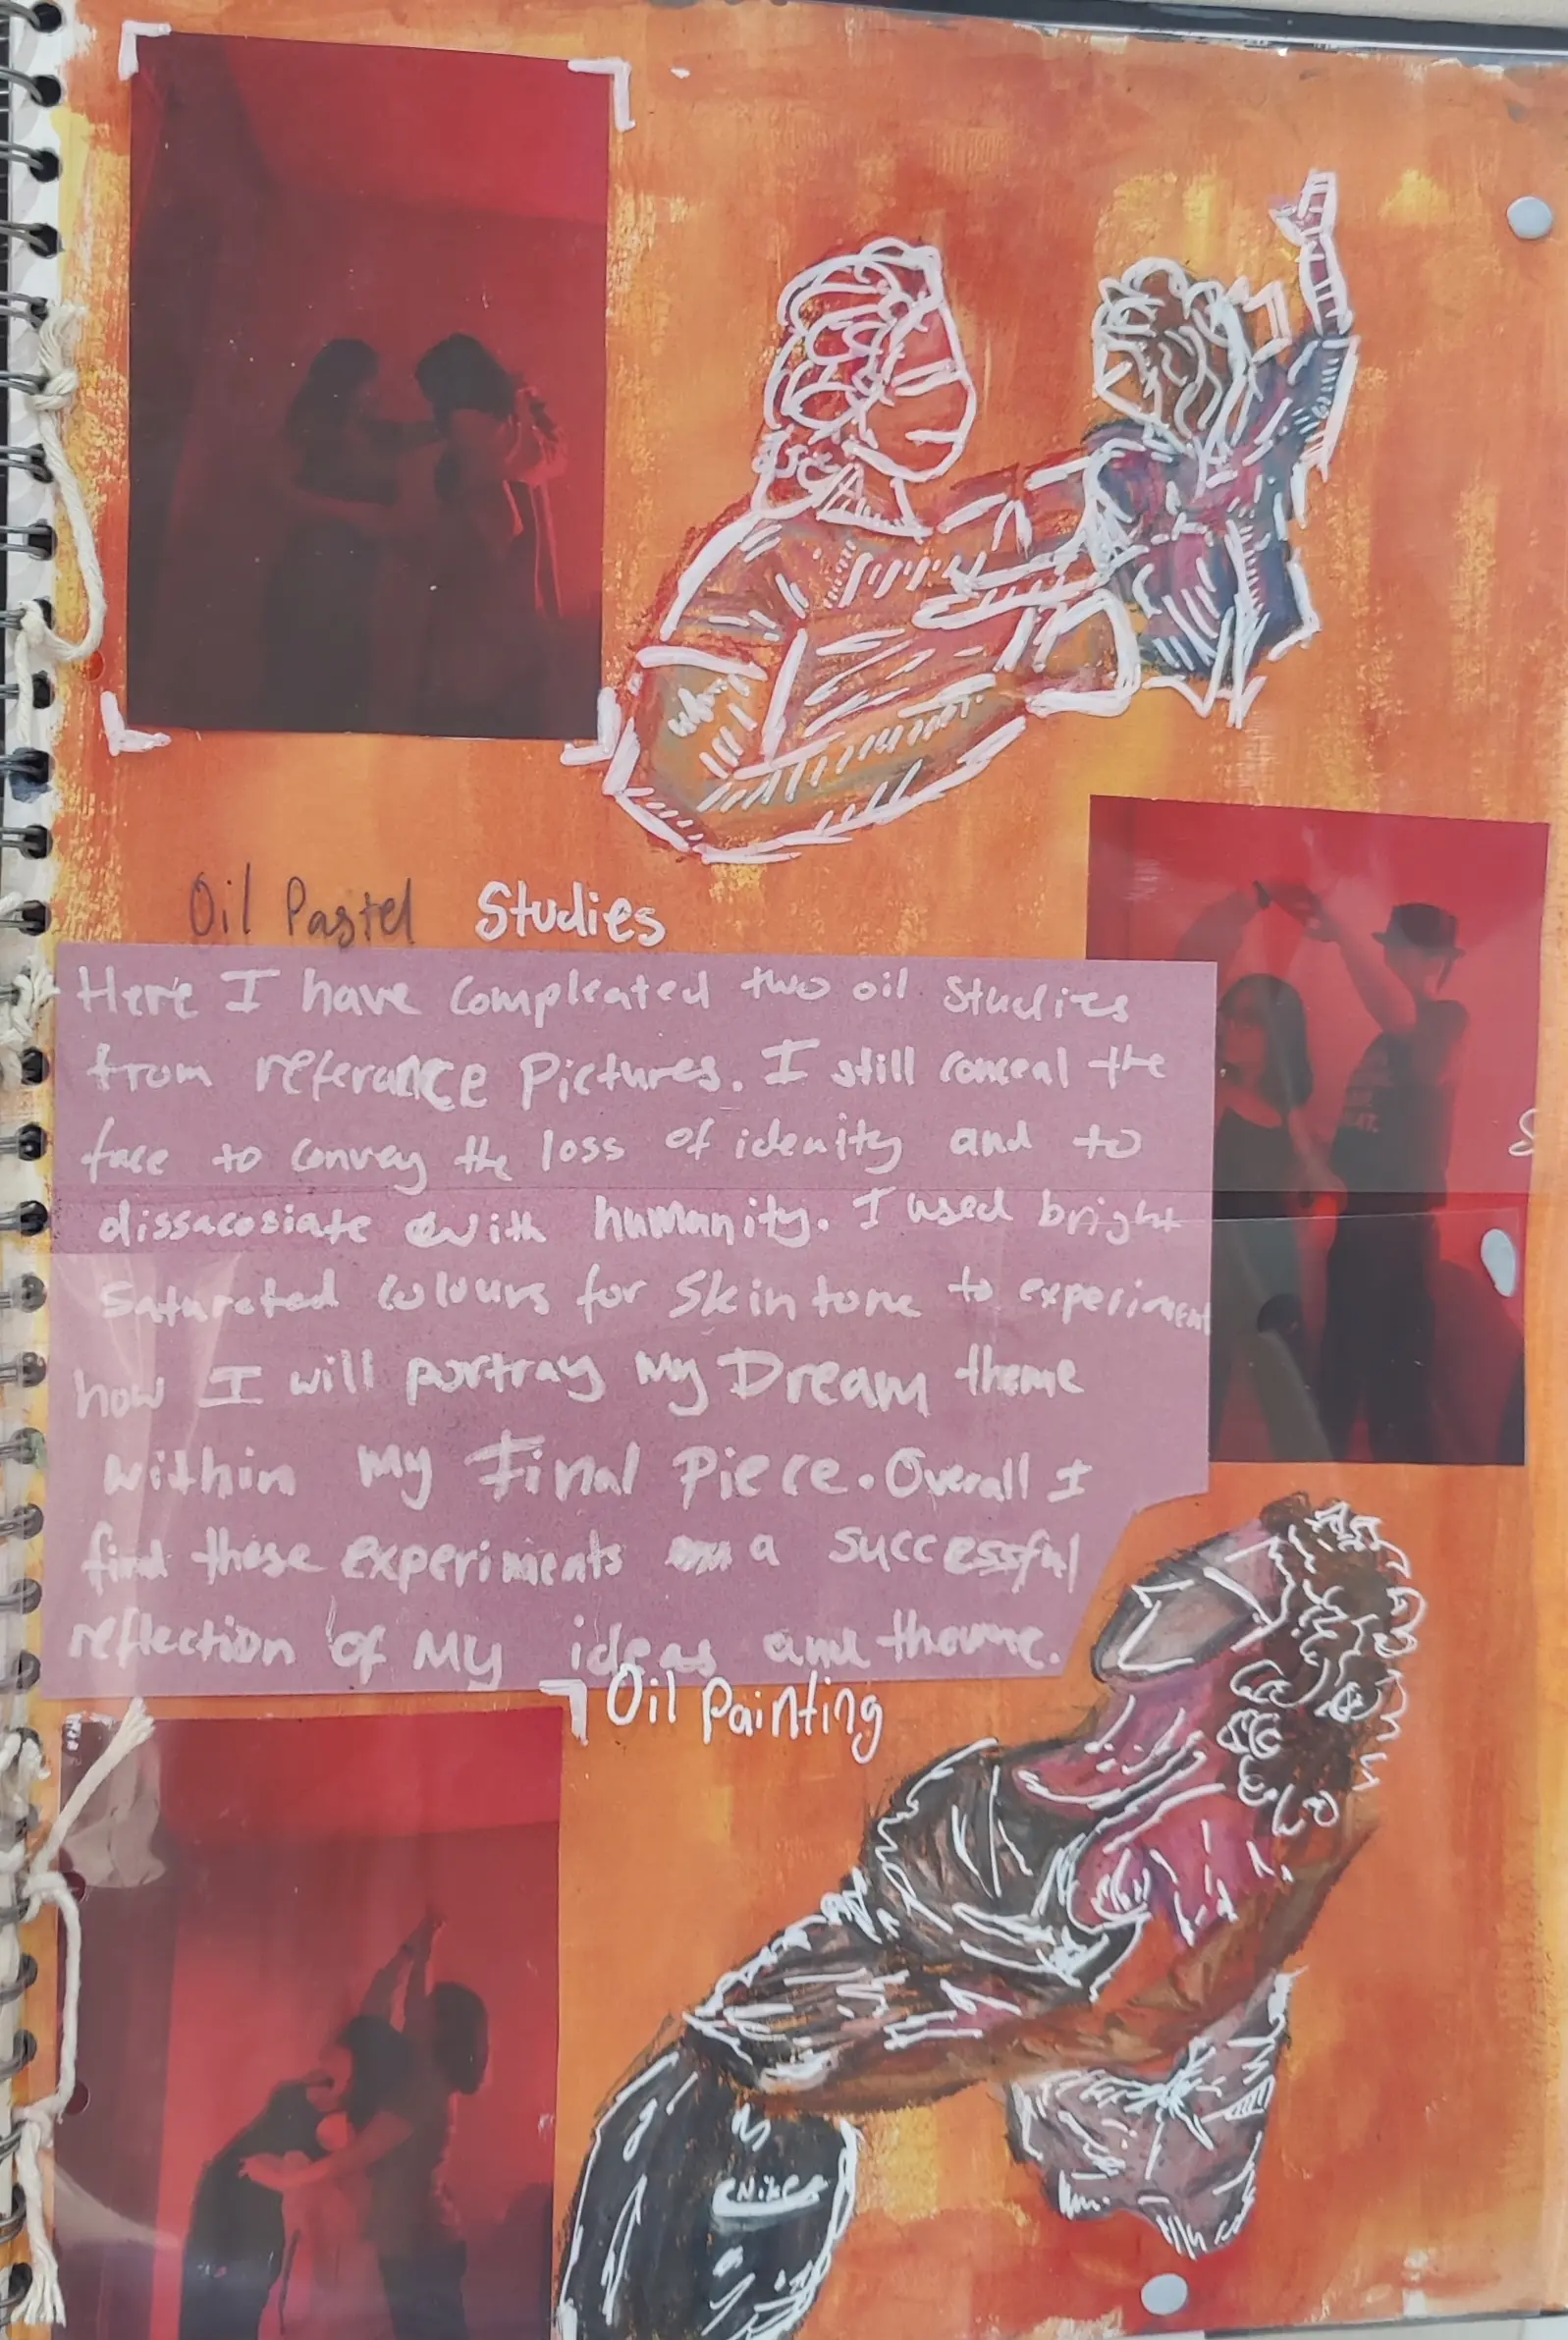 Oil Pastel Studies
Here I have compleated two oil studies
from referance pictures. I still conceal the
face to convey the loss of idenity and to
dissacosiate with humanity. I used bright
saturated colours for skin tone to experiment
how I will portray my Dream theme
within my Final Piece. Overall I
find these experiments a successful
reflection of my ideas and
Oil Painting